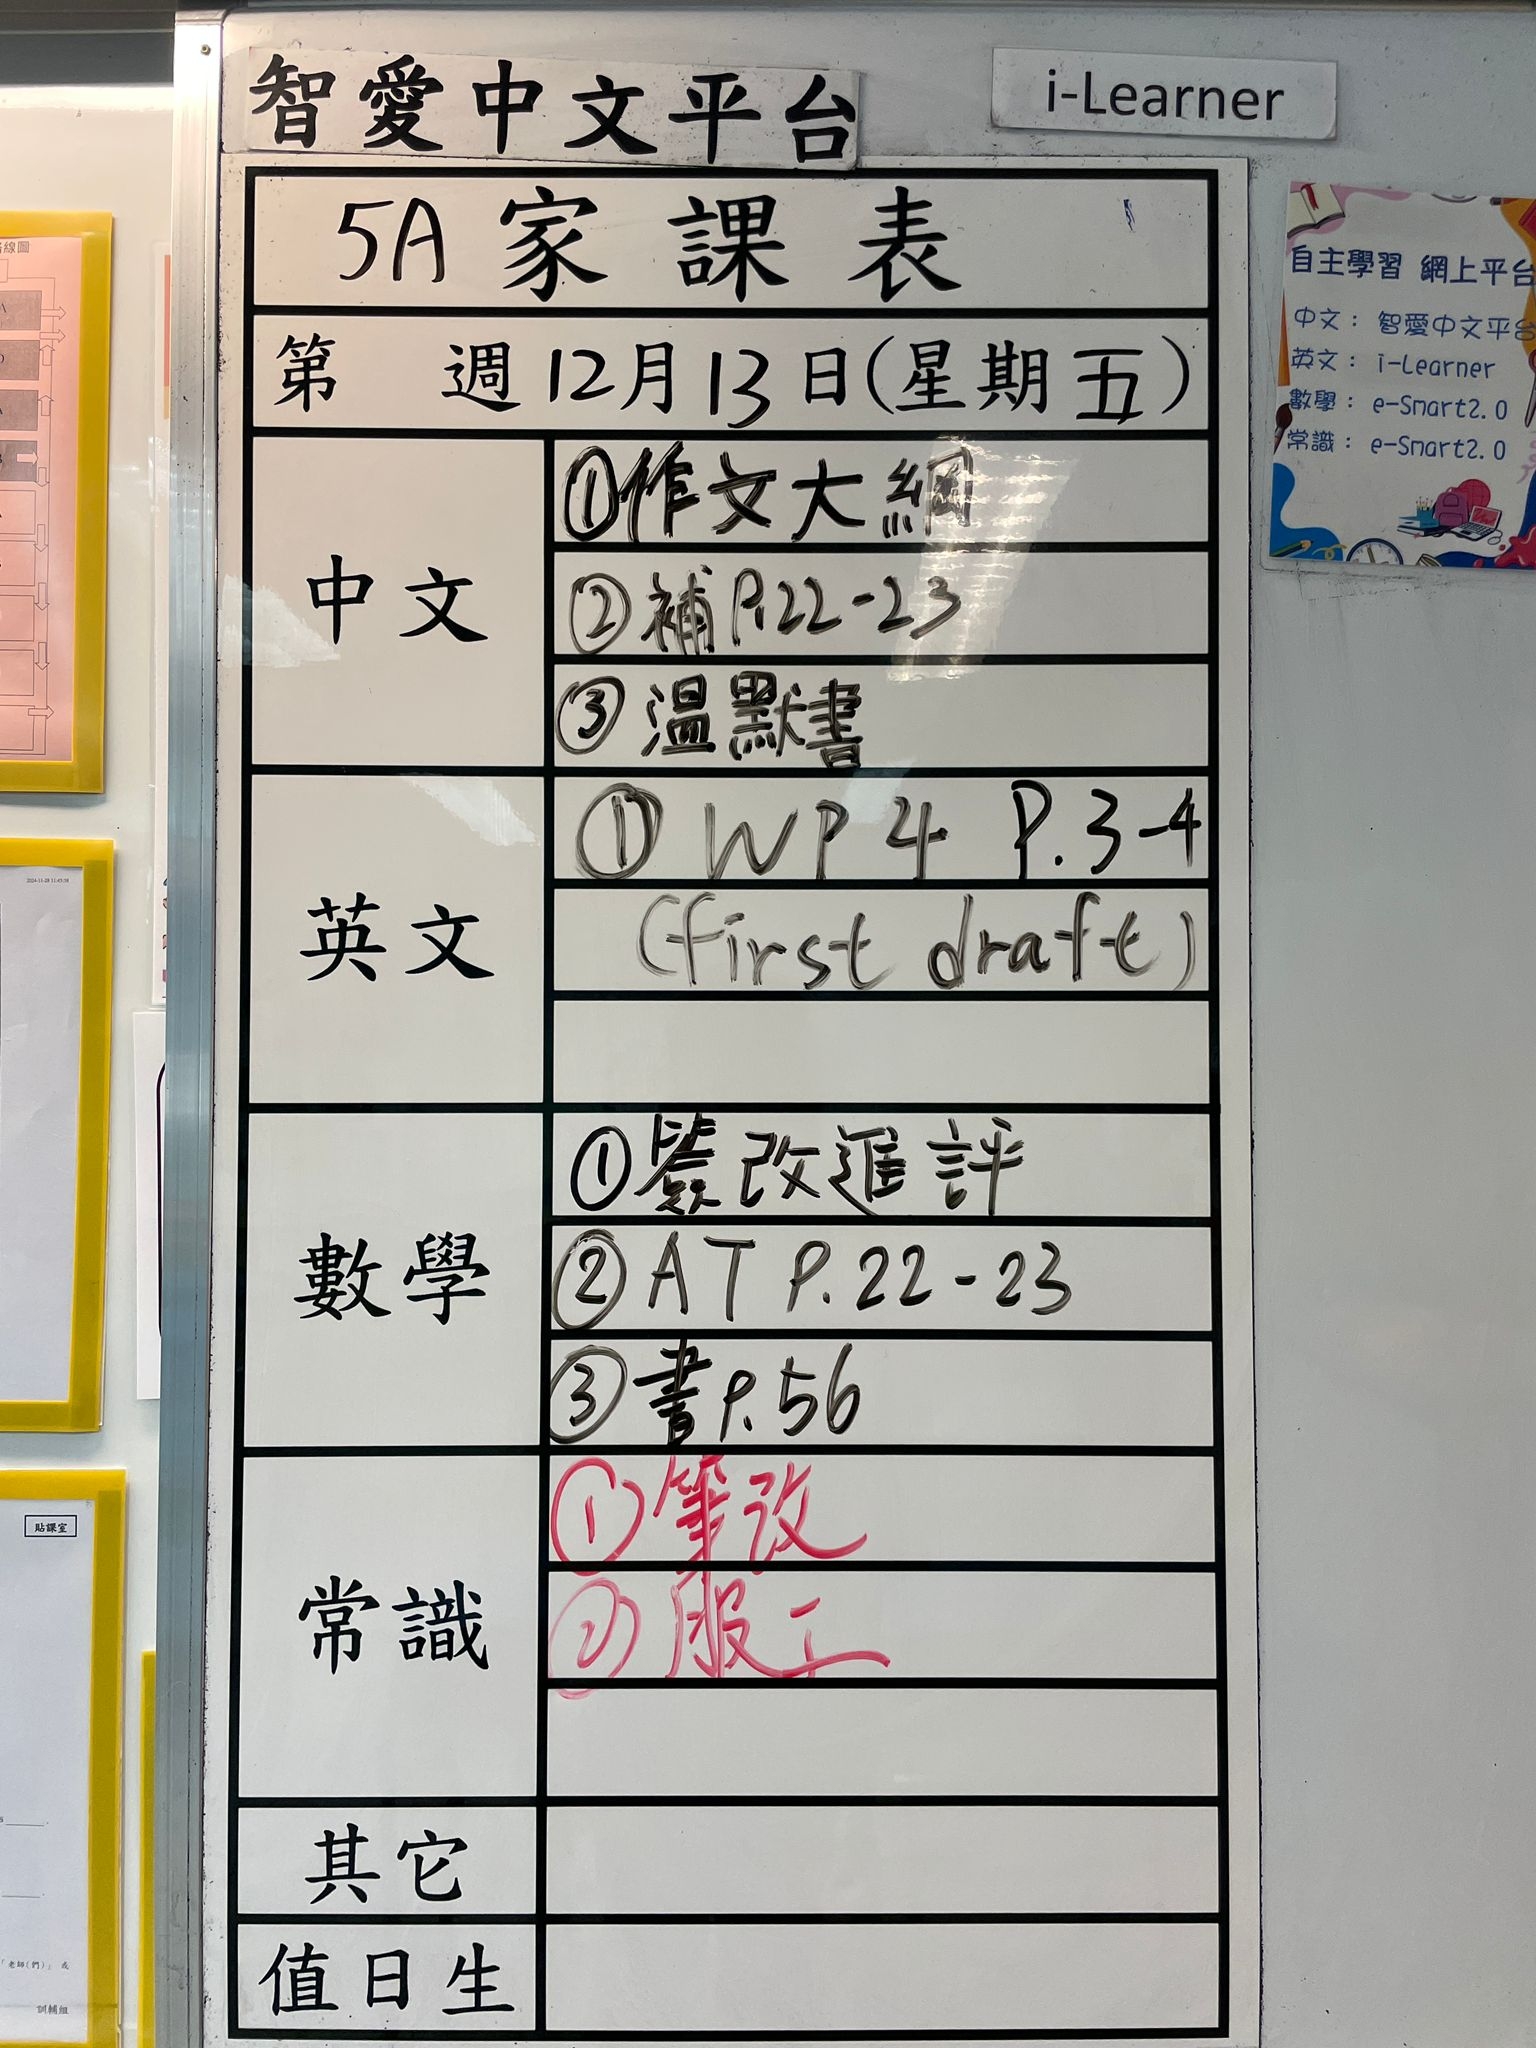 智愛中文平台
i-Learner
5A 家課表
第 週 12月13日(星期五)
中文
①作文大綱
②補P.22-23
③溫默書
英文
① WP4 P.3-4
(first draft)
數學
①簽改進評
②AT P.22-23
③書P.56
常識
①筆改
②服工
其它
值日生
自主學習 網上平台
中文： 智愛中文平台
英文： i-Learner
數學： e-Smart2.0
常識： e-Smart2.0
線圖
2024-11-28 11:45:58
貼課室
「老師(們)」 或
訓輔組